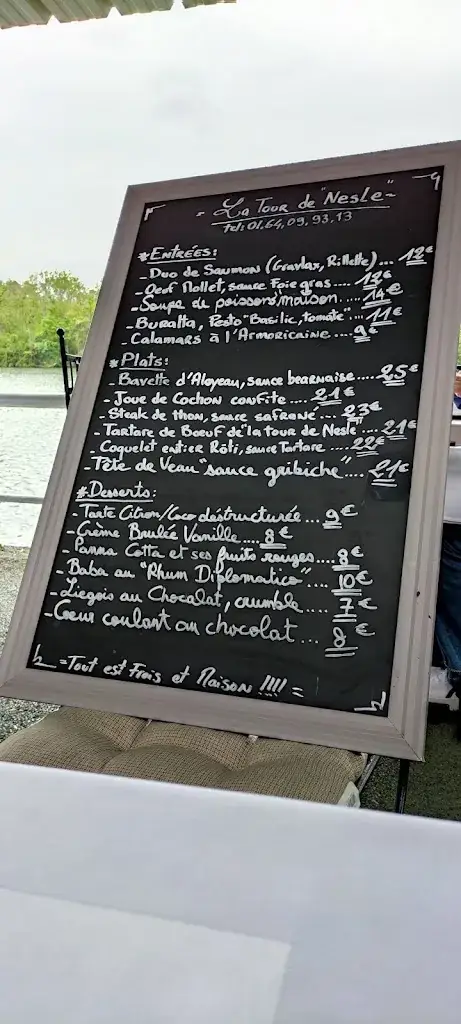 - La Tour de "Nesle" -
Tel: 01.64.09.93.13
* Entrées:
- Duo de Saumon (Gravlax, Rillette)... 12€
- Oeuf Mollet, sauce Foie gras.... 12€
- Soupe de poissons maison..... 14€
- Buratta, Pesto "Basilic, tomate"... 11€
- Calamars à l'Armoricaine... 9€
* Plats:
- Bavette d'Aloyeau, sauce bearnaise..... 25€
- Joue de Cochon confite.... 21€
- Steak de thon, sauce safrané.... 23€
- Tartare de Boeuf de "la tour de Nesle".. 21€
- Coquelet entier Rôti, sauce Tartare.... 22€
- Tête de Veau "sauce gribiche".... 21€
* Desserts:
- Tarte Citron/Coco déstructurée... 9€
- Crème Brulée Vanille.... 8€
- Panna Cotta et ses fruits rouges.... 8€
- Baba au "Rhum Diplomatico".... 10€
- Liegois au Chocolat, crumble.... 7€
- Coeur coulant au chocolat... 8€
= Tout est Frais et Maison !!!! =